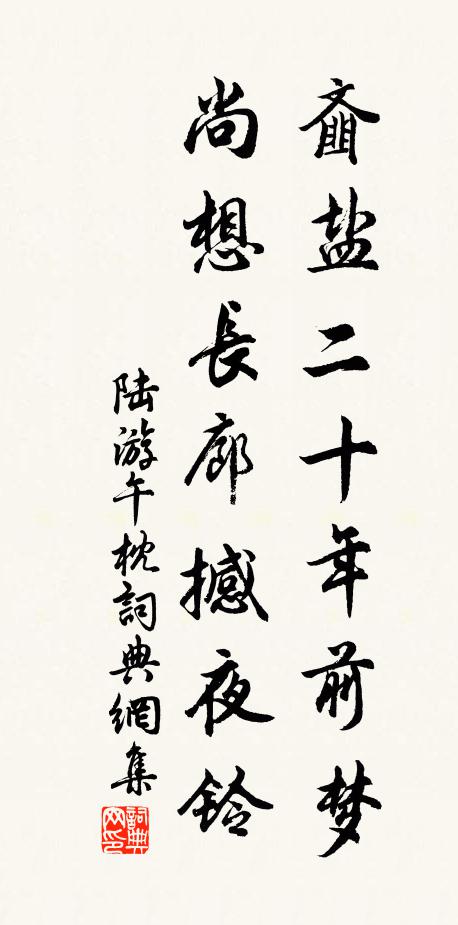 齑盐二十年前梦
尚想長廊撼夜鈴
陆游午枕詞典網集
詞典
网印